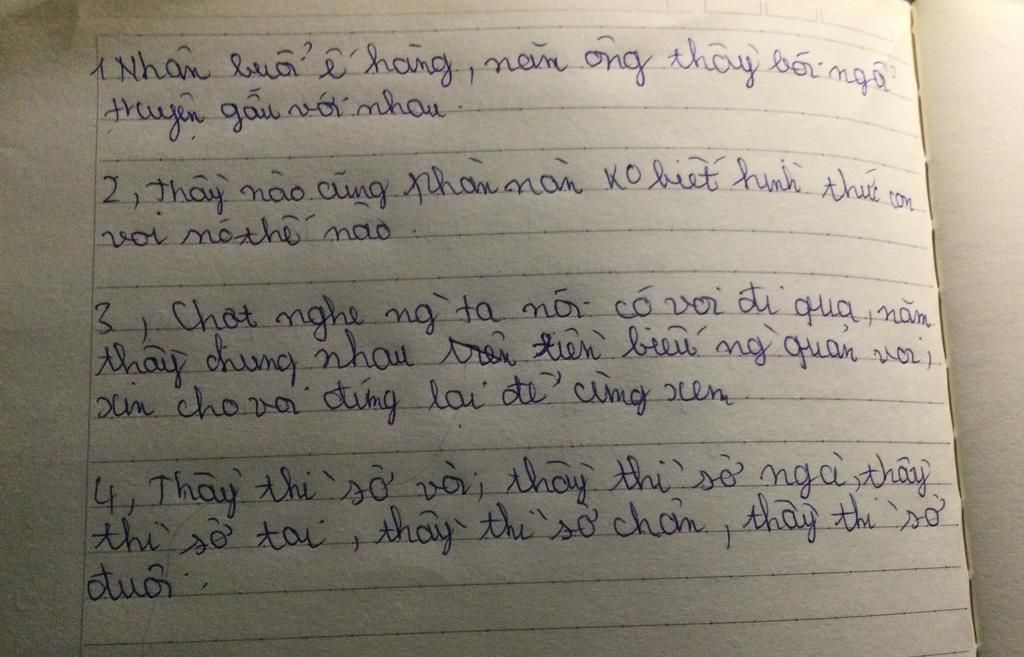 1 Nhân buổi ế hàng, năm ông thầy bói ngồi
truyện gẫu với nhau.
2, Thầy nào cũng phàn nàn KO biết hình thức con
voi nó thế nào.
3, Chợt nghe ng ta nói có voi đi qua, năm
thầy chung nhau tiền biếu ng quản voi,
xin cho voi đứng lại để cùng xem.
4, Thầy thì sờ vòi, thầy thì sờ ngà, thầy
thì sờ tai, thầy thì sờ chân, thầy thì sờ
đuôi.